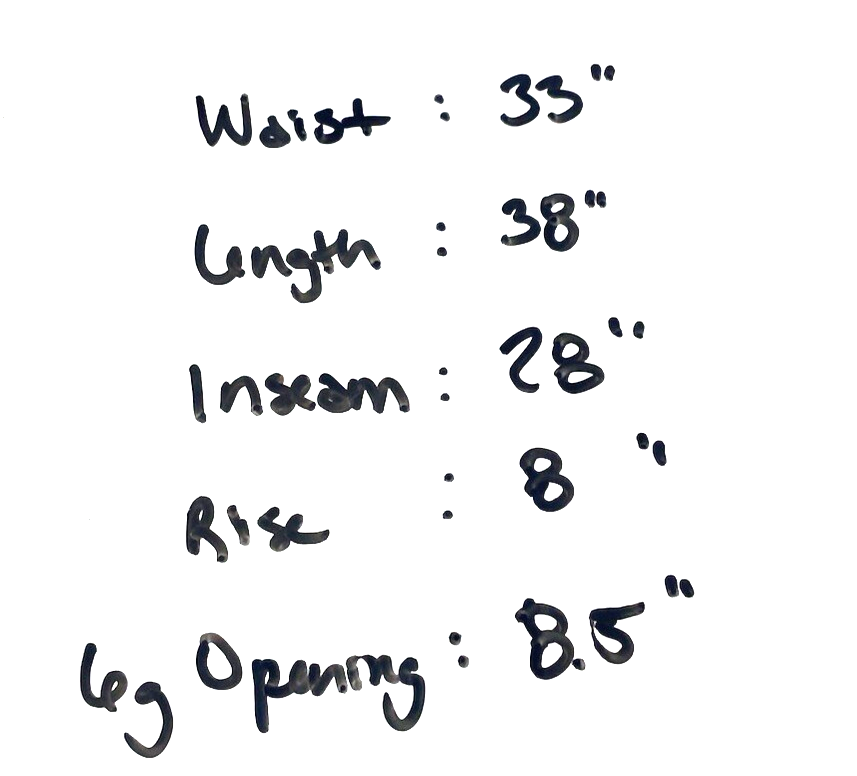 Waist : 33"
Length : 38"
Inseam : 28"
Rise : 8 "
Leg Opening : 8.5 "